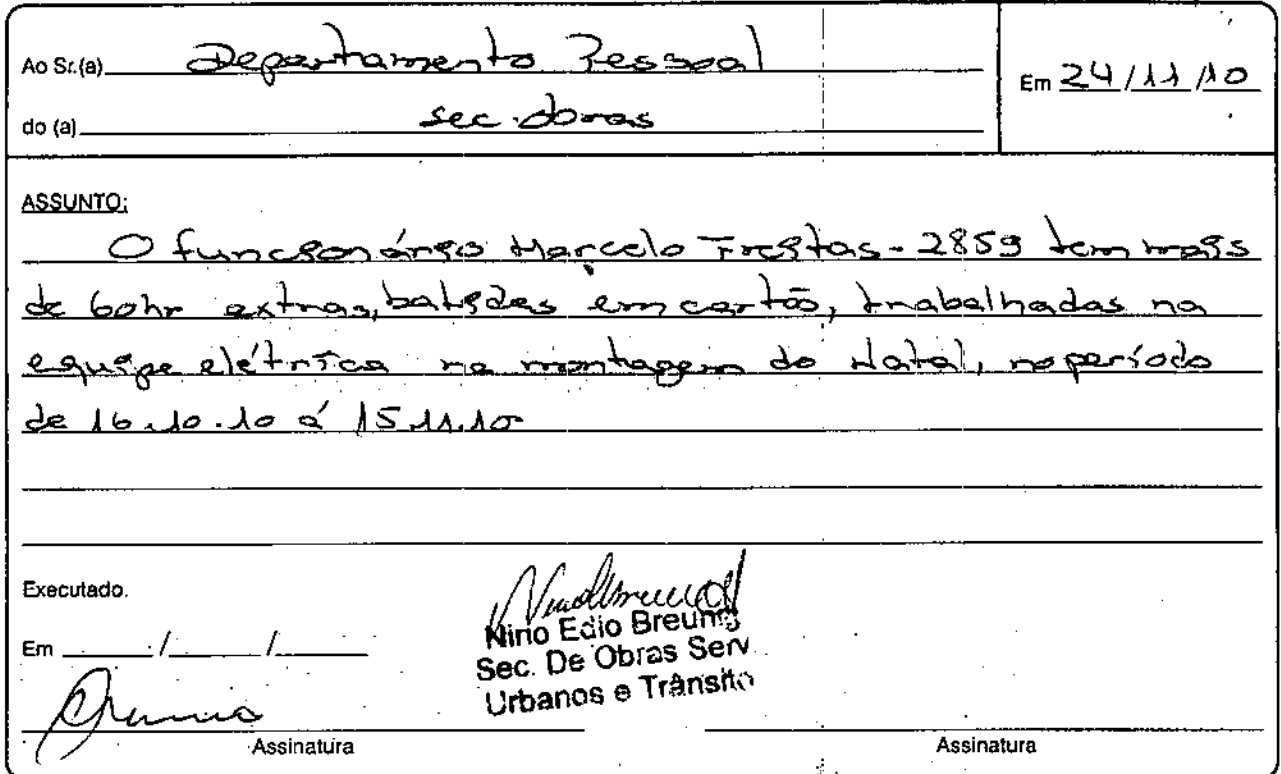 Ao Sr.(a) Departamento Pessoal
Em 24/11/10
do (a) sec. obras
ASSUNTO:
O funcionário Marcelo Freitas - 2859 tem mais
de 60hr extras, batidas em cartão, trabalhadas na
equipe elétrica na montagem do Natal, no período
de 16.10.10 á 15.11.10
Executado.
Em / /
Nirio Edio Breunig
Sec. De Obras Serv.
Urbanos e Trânsito
Assinatura
Assinatura